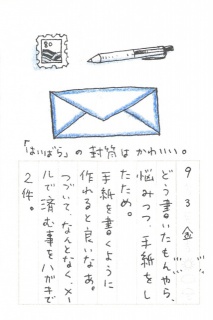 80
「はいばら」の封筒はかわいい。
9 3 金
どう書いたもんやら、
悩みつつ、手紙をし
たため。
手紙を書くように
作れると良いなあ。
つづいて、なんとなく、メー
ルで済む事をハガキで
2件。